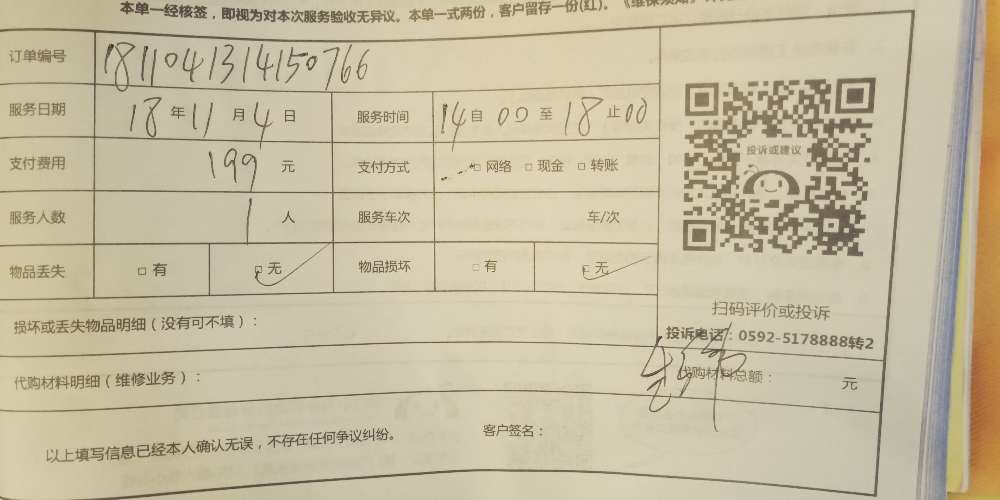 本单一经核签，即视为对本次服务验收无异议。本单一式两份，客户留存一份(红)。
订单编号 1811041314150766
服务日期 18年11月4日 服务时间 14自00至18止00
支付费用 199元 支付方式 □网络 □现金 □转账
服务人数 1人 服务车次 车/次
物品丢失 □有 □无 物品损坏 □有 □无
投诉或建议
扫码评价或投诉
投诉电话：0592-5178888转2
损坏或丢失物品明细（没有可不填）：
代购材料明细（维修业务）： 代购材料总额： 元
以上填写信息已经本人确认无误，不存在任何争议纠纷。 客户签名：